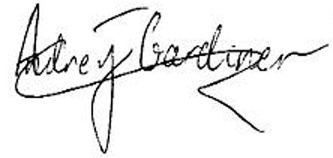 Audrey Gardiner